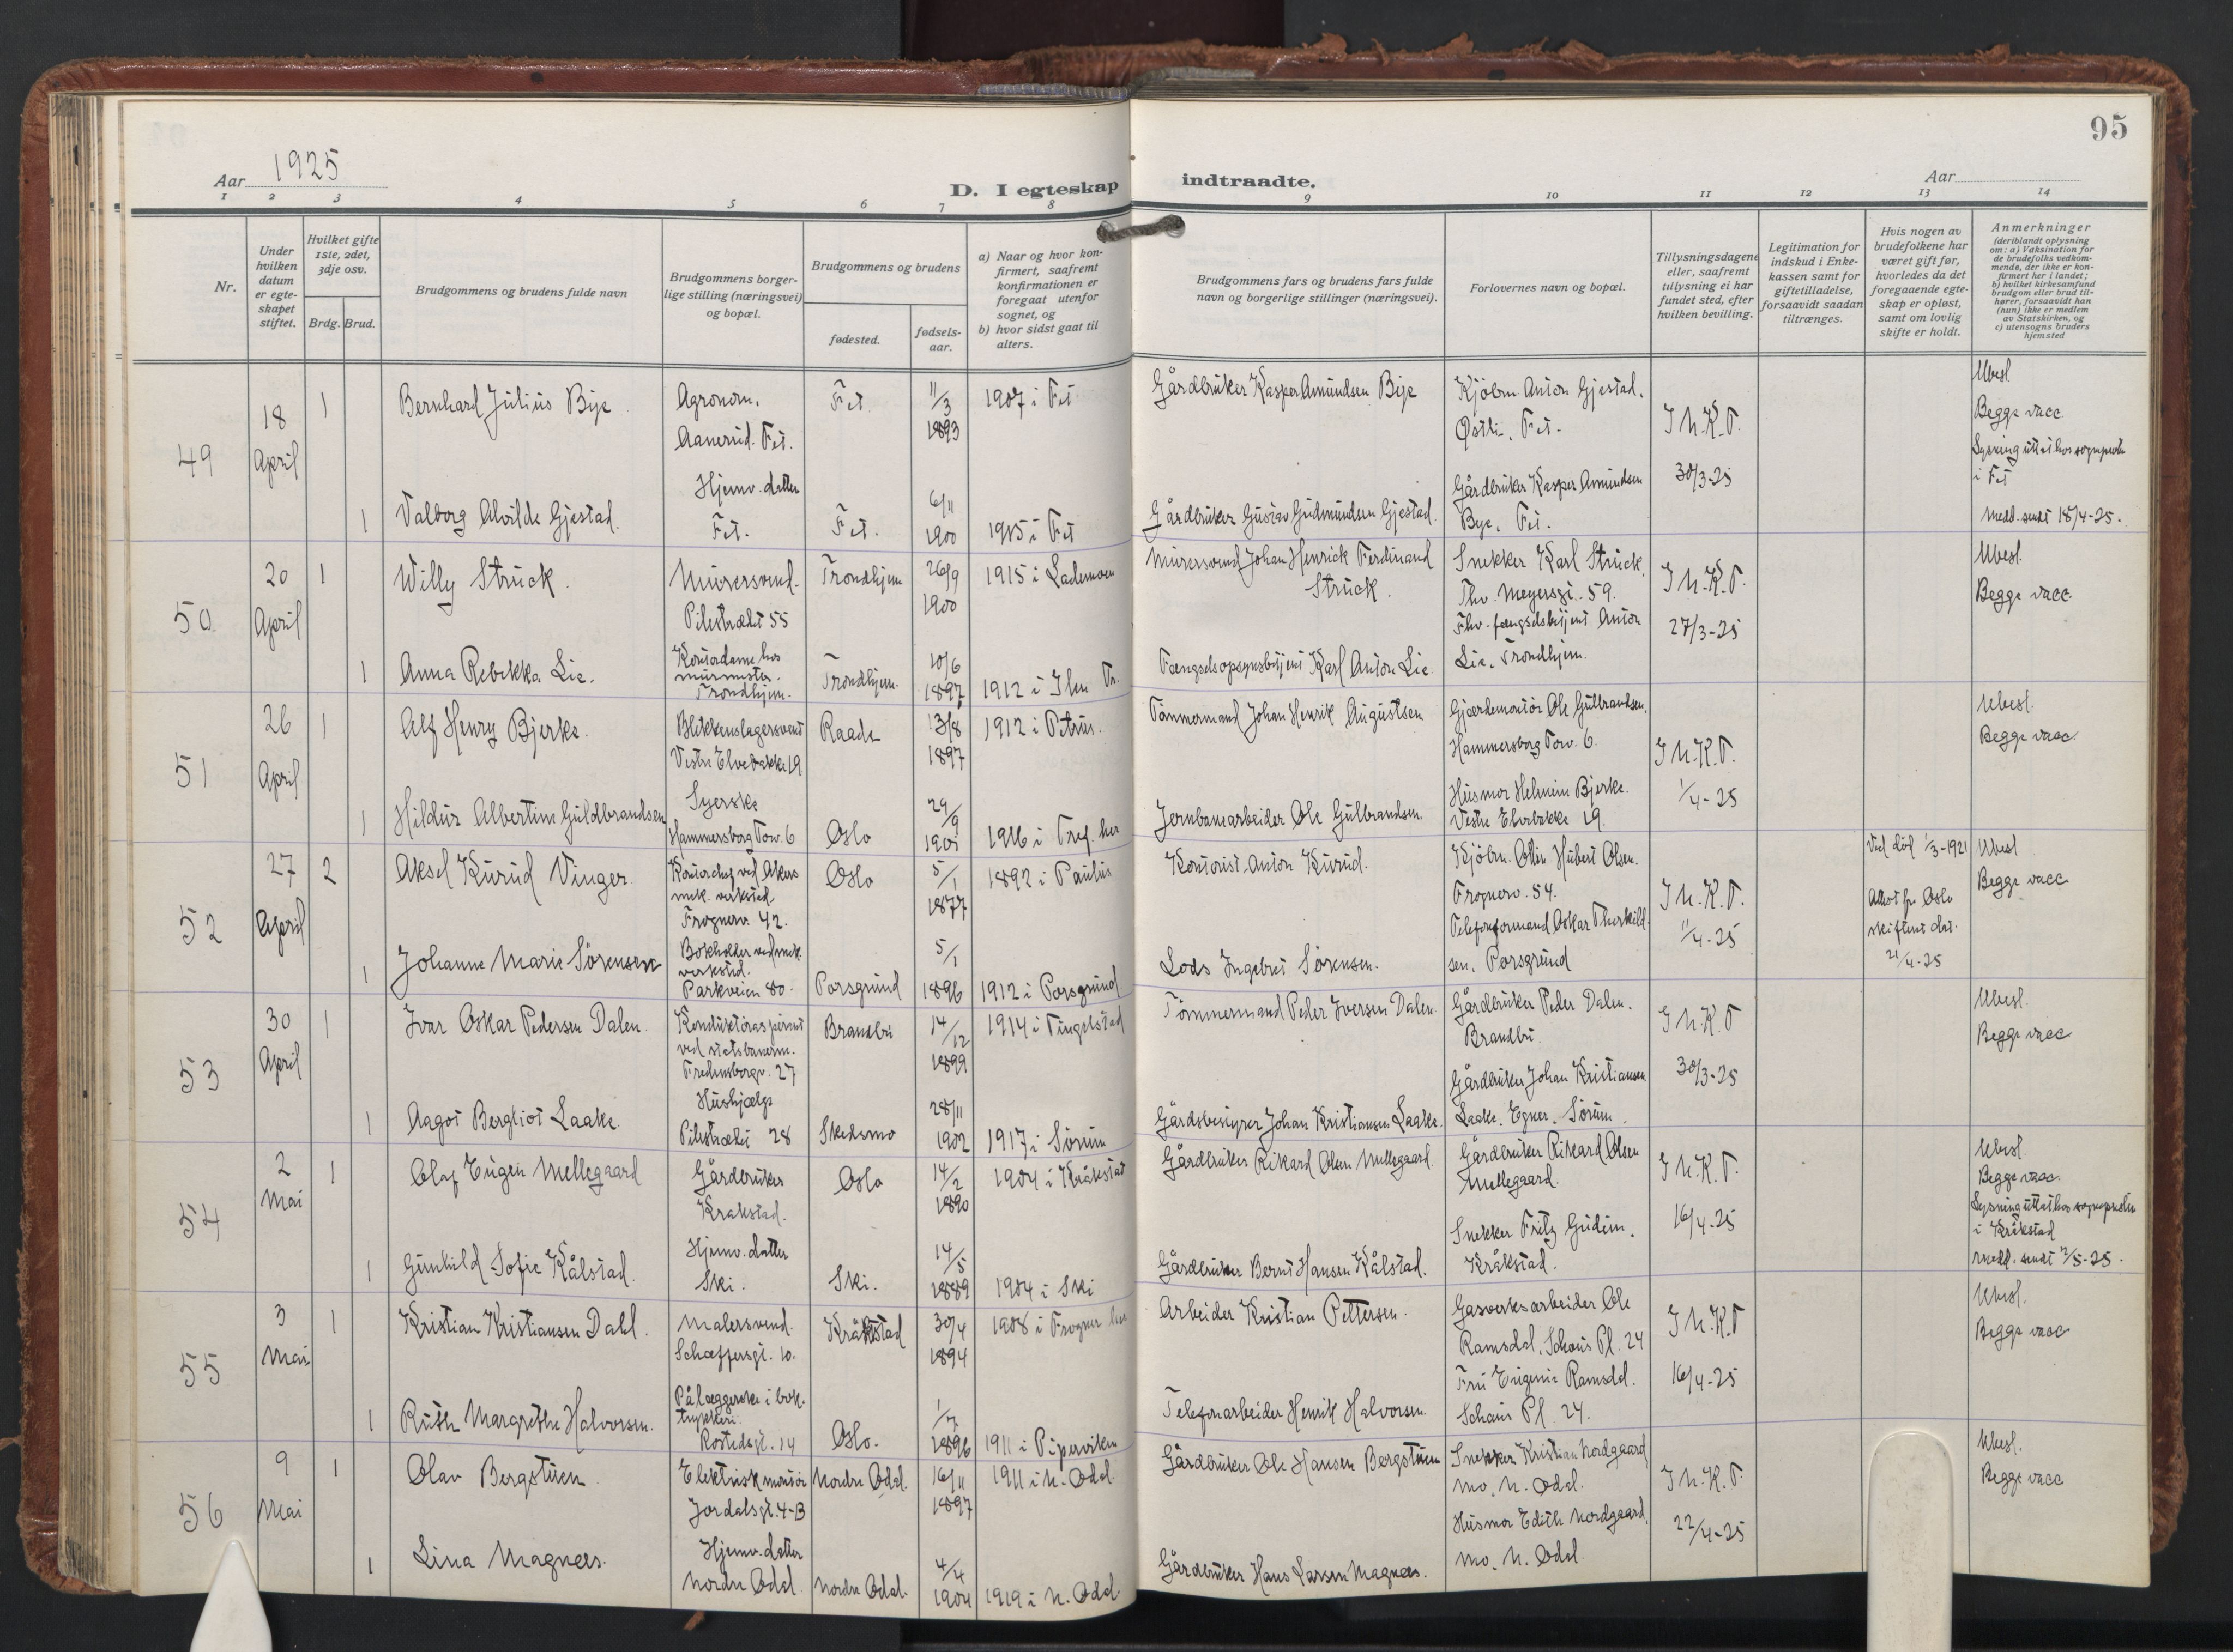 95
Aar 1925
D. I egteskap indtraadte.
Aar
1 2 3 4 5 6 7 8 9 10 11 12 13 14
Nr.
Under hvilken datum er egteskapet stiftet.
Hvilket gifte 1ste, 2det, 3dje osv.
Brdg. Brud.
Brudgommens og brudens fulde navn
Brudgommens borgerlige stilling (næringsvei) og bopæl.
Brudgommens og brudens
fødested.
fødselsaar.
a) Naar og hvor konfirmert, saafremt konfirmationen er foregaat utenfor sognet, og
b) hvor sidst gaat til alters.
Brudgommens fars og brudens fars fulde navn og borgerlige stillinger (næringsvei).
Forlovernes navn og bopæl.
Tillysningsdagene eller, saafremt tillysning ei har fundet sted, efter hvilken bevilling.
Legitimation for indskud i Enkekassen samt for giftetilladelse, forsaavidt saadan tiltrænges.
Hvis nogen av brudefolkene har været gift før, hvorledes da det foregaaende egteskap er opløst, samt om lovlig skifte er holdt.
Anmerkninger
(deriblandt oplysning om: a) Vaksination for de brudefolks vedkommende, der ikke er konfirmert her i landet;
b) hvilket kirkesamfund brudgom eller brud tilhører, forsaavidt han (hun) ikke er medlem av Statskirken, og
c) utensogns bruders hjemsted
49
18 April
1
Bernhard Julius Bye
Agronom.
Aanerud. Fet.
Fet.
11/3 1893
1907 i Fet
Gårdbruker Kasper Amundsen Bye
Kjøbm. Anton Gjestad.
Østli. Fet.
J N.K.T.
30/3-25
Ubesl.
Begge vacc.
Lysning uttat hos sogneprsten
i Fet
Medd. sendt 18/4-25.
1
Valborg Alvilde Gjestad.
Hjemv. datter
Fet.
Fet.
6/11 1900
1915 i Fet
Gårdbruker Gustav Gudmundsen Gjestad.
Gårdbruker Kasper Amundsen
Bye, Fet.
50
20 April
1
Willy Struck.
Murersvend.
Pilestrædet 55
Trondhjem
26/9 1900
1915 i Lademoen
Murersvend Johan Henrick Ferdinand
Struck.
Snekker Karl Struck,
Thv. Meyersgt. 59.
J N.K.T.
27/3-25
Ubesl.
Begge vacc.
1
Anna Rebekka Lie.
Kontordame hos
murmester.
Trondhjem.
Trondhjem.
10/6 1897
1912 i Ilen Tr.
Fængselsopsynsbetjent Karl Anton Lie.
Fhv. fængselsbetjent Anton
Lie, Trondhjem.
51
26 April
1
Alf Henry Bjerke.
Blikkenslagersvend
Vestre Elvebakke 19
Raade
13/8 1897
1912 i Petrus.
Tømmermand Johan Henrik Augustsen
Gjærdemontør Ole Gulbrandsen.
Hammersborg Torv. 6.
J N.K.T.
1/4-25
Ubesl.
Begge vacc.
1
Hildur Albertine Guldbrandsen
Syerske
Hammersborg Torv. 6
Oslo
29/9 1901
1916 i Tref. her
Jernbanearbeider Ole Gulbrandsen.
Husmor Helmine Bjerke.
Vestre Elvebakke 19.
52
27 April
2
Aksel Kurud Vinger
Kontorchef ved Akers
mek. verksted
Frognerv. 42.
Oslo
5/1 1877
1892 i Paulus
Kontorist Anton Kurud.
Kjøbm. Odin Hubert Olsen.
Frognerv. 54.
J N.K.T.
11/4-25
Ved død 1/3-1921
Attest fr. Oslo
skifteret dat.
21/4-25
Ubesl
Begge vacc
1
Johanne Marie Sörensen
Bokholder ved mek.
verksted.
Parkveien 80.
Porsgrund
5/1 1896
1912 i Porsgrund.
Lods Ingebret Sörensen.
Telefonformand Oskar Therkildsen.
Porsgrund
53
30 April
1
Ivar Oskar Pedersen Dalen.
Konduktöraspirant
ved statsbanerne.
Fredensborgv. 27
Brandbu
14/12 1899
1914 i Tingelstad
Tömmermand Peder Iversen Dalen
Gårdbruker Peder Dalen.
Brandbu.
J N.K.T
30/3-25
Ubesl.
Begge vacc
1
Aagot Bergliot Laake.
Hushjælp
Pilestrædet 28
Skedsmo
28/11 1902
1917 i Sörum
Gårdsbestyrer Johan Kristiansen Laake.
Gårdbruker Johan Kristiansen
Laake. Egner. Sörum.
54
2 Mai
1
Olaf Eugen Mellegaard
Gårdbruker
Kråkstad.
Oslo
14/2 1890
1904 i Kråkstad
Gårdbruker Rikard Olsen Mellegaard.
Gårdbruker Rikard Olsen
Mellegaard.
J N.K.T.
16/4-25
Ubesl.
Begge vacc.
Lysning uttat hos sogneprsten
i Kråkstad
Medd. sendt 2/5-25.
1
Gunhild Sofie Kålstad.
Hjemv. datter
Ski.
Ski.
14/5 1889
1904 i Ski
Gårdbruker Bernt Hansen Kålstad.
Snekker Fritz Gudim.
Kråkstad.
55
3 Mai
1
Kristian Kristiansen Dahl.
Malersvend.
Schæffersgt. 10.
Kråkstad
30/4 1894
1908 i Frogner her
Arbeider Kristian Pettersen.
Gasverksarbeider Ole
Ramsdal, Schous Pl. 24
J N.K.T
16/4-25
Ubesl.
Begge vacc
1
Ruth Margrethe Halvorsen.
Pålæggerske i boktrykkeri.
Rostedsgt. 14
Oslo.
1/7 1896
1911 i Piperviken
Telefonarbeider Henrik Halvorsen.
Fru Eugenie Ramsdal.
Schous Pl. 24.
56
9 Mai
1
Olav Bergstuen
Elektrisk montör
Jordalsgt. 4-B
Nordre Odal.
16/11 1897
1911 i N. Odal.
Gårdbruker Ole Hansen Bergstuen
Snekker Kristian Nordgaard
Mo, N. Odal.
J N.K.T.
22/4-25
Ubesl.
Begge vacc
1
Lina Magnees.
Hjemv. datter
Nordre Odal.
Nordre Odal.
4/4 1904
1919 i N. Odal.
Gårdbruker Hans Larsen Magnæs.
Husmor Edith Nordgaard,
Mo, N. Odal.